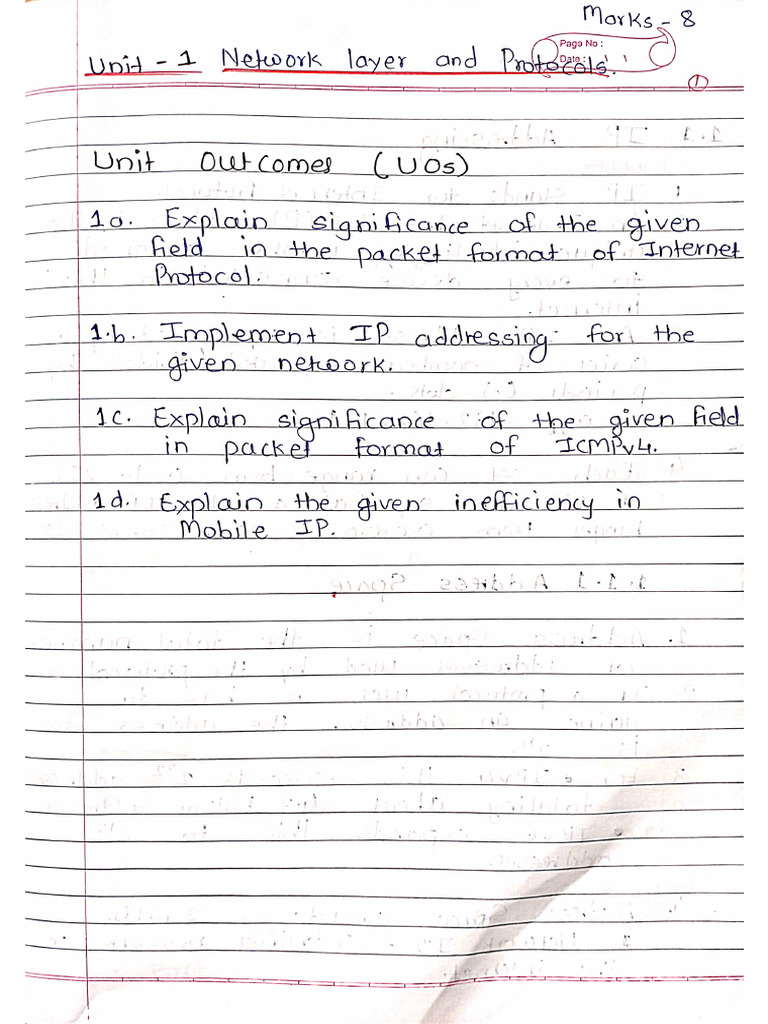 Marks - 8
Page No :
Date :
Unit - 1 Network layer and Protocols.
1
Unit Outcomes (UOs)
1a. Explain significance of the given
field in the packet format of Internet
Protocol.
1.b. Implement IP addressing for the
given network.
1c. Explain significance of the given field
in packet format of ICMPv4.
1d. Explain the given inefficiency in
Mobile IP.